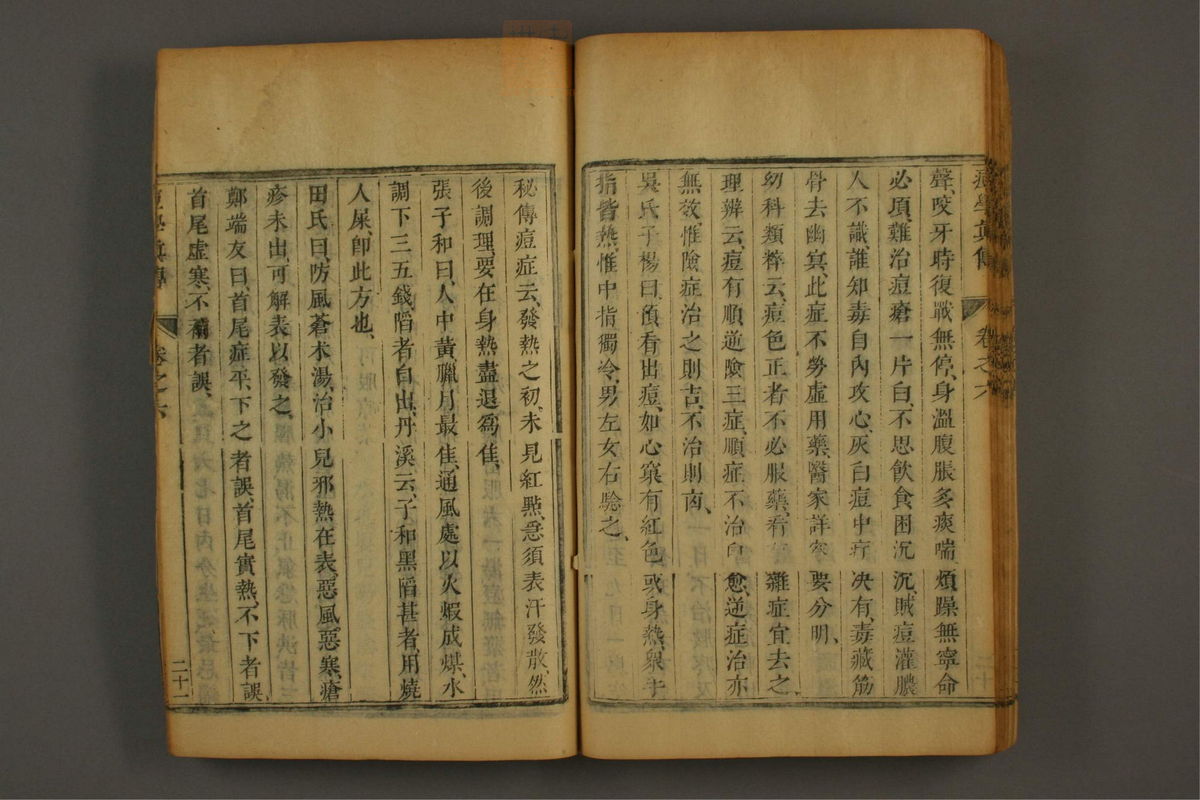 聲、咬牙時復戰無停、身溫腹脹多痰喘、煩躁無寧命
必頃、難治痘瘡一片白、不思飲食困沉沉、賊痘灌膿
人不識、誰知毒自內攻心、灰白痘中疔決有、毒藏筋
骨去幽冥、此症不勞虛用藥、醫家詳察要分明、
幼科類粹云、痘色正者不必服藥、看雜症宜去之、
理辨云、痘有順逆險三症、順症不治自愈、逆症治亦
無效、惟險症治之則吉、不治則凶、
吳氏子楊曰、預看出痘、如心窠有紅色、或身熱、衆手
指皆熱、惟中指獨冷、男左女右驗之、
卷之六
秘傳痘症云、發熱之初、未見紅㸃、急須表汗發散、然
後調理、要在身熱盡退爲佳、
張子和曰、人中黃臘月最佳、通風處以火煆成煤、水
調下三五錢、陷者自出、丹溪云、子和黑陷甚者、用燒
人屎、卽此方也、
田氏曰、防風蒼术湯、治小兒邪熱在表、惡風、惡寒、瘡
疹未出、可解表以發之、
鄭端友曰、首尾症平、下之者誤、首尾實熱、不下者誤、
首尾虛寒、不補者誤、
卷之六
二十一